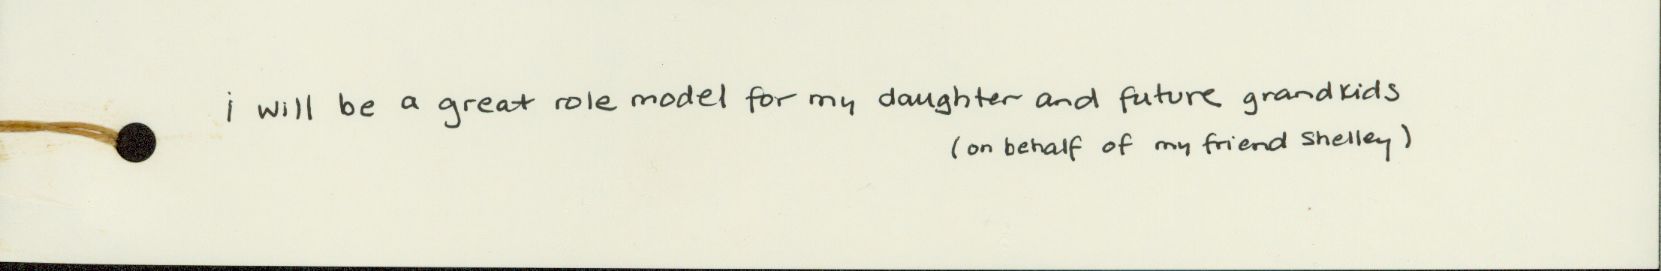 i will be a great role model for my daughter and future grandkids
(on behalf of my friend Shelley)